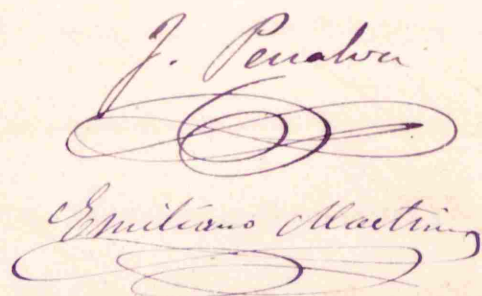 J. Penalver
Emiliano Martinez